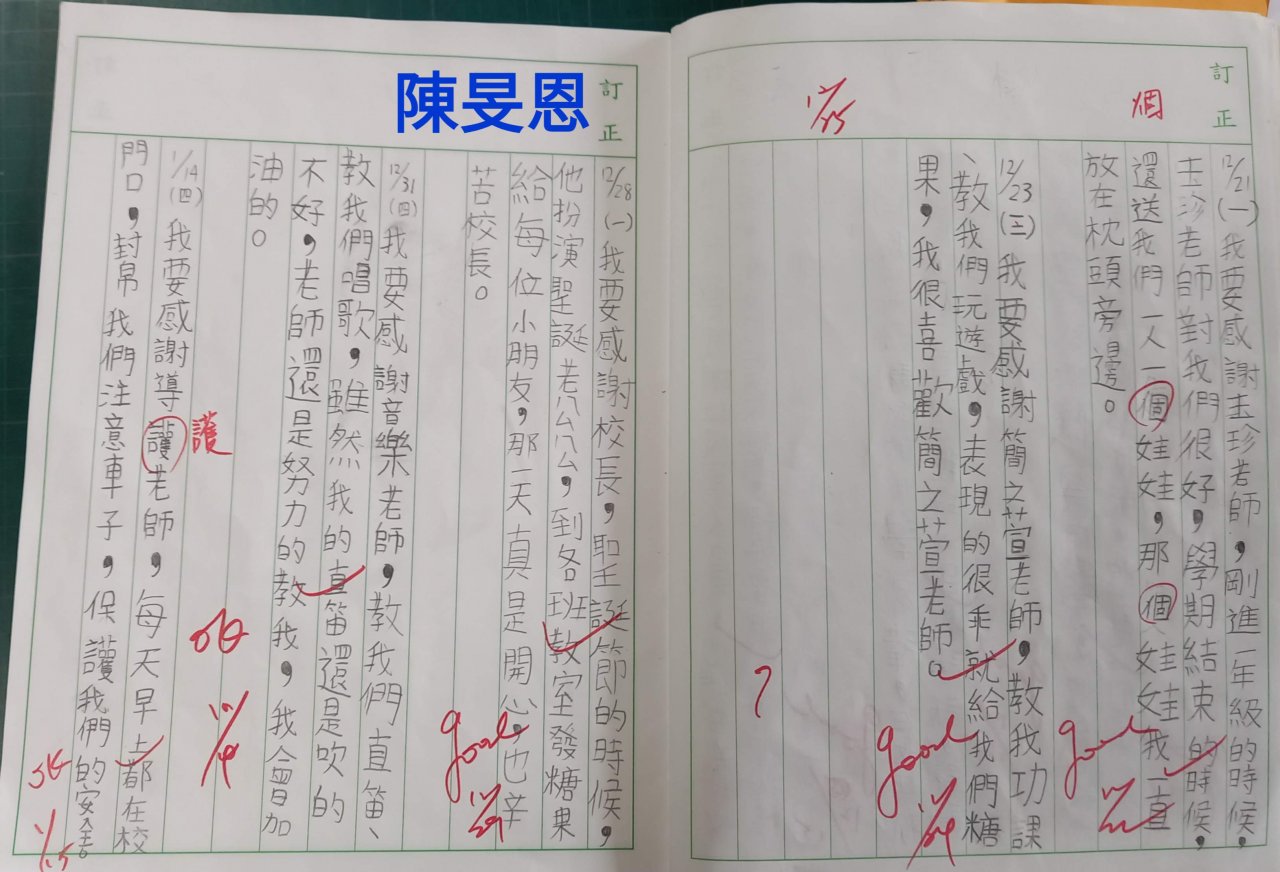 訂正
個
12/25
12/21(一)我要感謝玉珍老師，剛進一年級的時候，
玉珍老師對我們很好，學期結束的時候，
還送我們一人一個娃娃，那個娃娃我一直
放在枕頭旁邊。
good
12/22
12/23(三)我要感謝簡之萱老師，教我功課
、教我們玩遊戲，表現的很乖就給我們糖
果，我很喜歡簡之萱老師。
good
12/24
?
訂正
陳旻恩
12/28(一)我要感謝校長，聖誕節的時候，
他扮演聖誕老公公，到各班教室發糖果
給每位小朋友，那一天真是開心，也辛
苦校長。
good
12/29
12/31(四)我要感謝音樂老師，教我們直笛、
教我們唱歌，雖然我的直笛還是吹的
不好，老師還是努力的教我，我會加
油的。
1/4
1/14(四)我要感謝導護老師，每天早上都在校
護
門口，封帛我們注意車子，保護我們的安全。
1/15